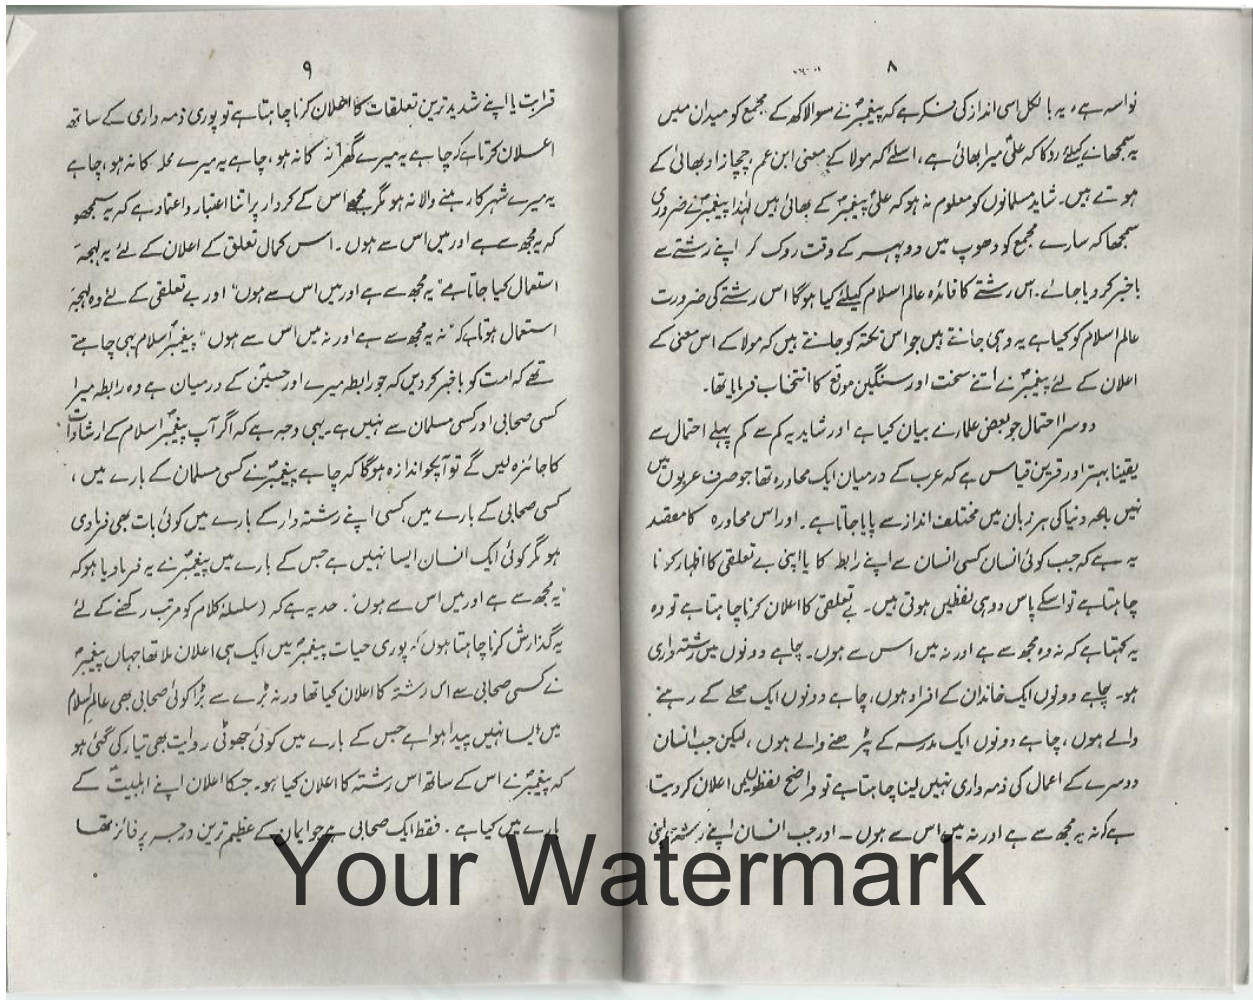 ۸
نواسہ ہے، یہ بالکل اسی انداز کی فکر ہے کہ پیغمبرؐ نے سوا لاکھ کے مجمع کو میدان میں
یہ سمجھانے کیلئے روکا کہ علیؑ میرا بھائی ہے، اسلئے کہ مولا کے معنی ابن عم، چچازاد بھائی کے
ہوتے ہیں۔ شاید مسلمانوں کو معلوم نہ ہو کہ علیؑ پیغمبرؐ کے بھائی ہیں لہٰذا پیغمبرؐ نے ضروری
سمجھا کہ سارے مجمع کو دھوپ میں دوپہر کے وقت روک کر اپنے رشتے سے
باخبر کر دیا جائے۔ اس رشتے کا فائدہ عالم اسلام کیلئے کیا ہوگا اس رشتے کی ضرورت
عالم اسلام کو کیا ہے یہ وہی جانتے ہیں جو اس نکتہ کو جانتے ہیں کہ مولا کے اس معنی کے
اعلان کے لئے پیغمبرؐ نے اتنے سخت اور سنگین موقع کا انتخاب فرمایا تھا۔
دوسرا احتمال جو بعض علماء نے بیان کیا ہے اور شاید یہ کم سے کم پہلے احتمال سے
یقیناً بہتر اور قرین قیاس ہے کہ عرب کے درمیان ایک محاورہ تھا جو صرف عربوں میں
نہیں بلکہ دنیا کی ہر زبان میں مختلف انداز سے پایا جاتا ہے۔ اور اس محاورہ کا مقصد
یہ ہے کہ جب کوئی انسان کسی انسان سے اپنے رابطہ کا یا اپنی بے تعلقی کا اظہار کرنا
چاہتا ہے تو اسکے پاس دو ہی لفظیں ہوتی ہیں۔ بے تعلقی کا اعلان کرنا چاہتا ہے تو وہ
یہ کہتا ہے کہ نہ وہ مجھ سے ہے اور نہ میں اس سے ہوں۔ چاہے دونوں میں رشتہ داری
ہو۔ چاہے دونوں ایک خاندان کے افراد ہوں، چاہے دونوں ایک محلے کے رہنے
والے ہوں، چاہے دونوں ایک مدرسہ کے پڑھنے والے ہوں، لیکن جب انسان
دوسرے کے اعمال کی ذمہ داری نہیں لینا چاہتا ہے تو واضح لفظوں میں اعلان کر دیتا
ہے کہ نہ یہ مجھ سے ہے اور نہ میں اس سے ہوں۔ اور جب انسان اپنے رشتہ اپنی
۹
قرابت یا اپنے شدید ترین تعلقات کا اعلان کرنا چاہتا ہے تو پوری ذمہ داری کے ساتھ
اعلان کرتا ہے کہ چاہے یہ میرے گھرانہ کا نہ ہو، چاہے یہ میرے محلہ کا نہ ہو، چاہے
یہ میرے شہر کا رہنے والا نہ ہو مگر مجھے اس کے کردار پر اتنا اعتبار و اعتماد ہے کہ یہ سمجھو
کہ یہ مجھ سے ہے اور میں اس سے ہوں۔ اس کمال تعلق کے اعلان کے لئے یہ لہجہ
استعمال کیا جاتا ہے "یہ مجھ سے ہے اور میں اس سے ہوں" اور بے تعلقی کے لئے وہ لہجہ
استعمال ہوتا ہے کہ "نہ یہ مجھ سے ہے اور نہ میں اس سے ہوں" پیغمبرؐ اسلام یہی چاہتے
تھے کہ امت کو باخبر کر دیں کہ جو رابطہ میرے اور حسینؑ کے درمیان ہے وہ رابطہ میرا
کسی صحابی اور کسی مسلمان سے نہیں ہے۔ یہی وجہ ہے کہ اگر آپ پیغمبرؐ اسلام کے ارشادات
کا جائزہ لیں گے تو آپکو اندازہ ہوگا کہ چاہے پیغمبرؐ نے کسی مسلمان کے بارے میں،
کسی صحابی کے بارے میں، کسی اپنے رشتہ دار کے بارے میں کوئی بات بھی فرما دی
ہو مگر کوئی ایک انسان ایسا نہیں ہے جس کے بارے میں پیغمبرؐ نے یہ فرما دیا ہو کہ
"یہ مجھ سے ہے اور میں اس سے ہوں"۔ حد یہ ہے کہ (سلسلۂ کلام کو مرتب رکھنے کے لئے
یہ گذارش کرنا چاہتا ہوں) کہ پوری حیات پیغمبرؐ میں ایک ہی اعلان ملا تھا جہاں پیغمبرؐ
نے کسی صحابی سے اس رشتہ کا اعلان کیا تھا ورنہ بڑے سے بڑا کوئی صحابی بھی عالم اسلام
میں ایسا نہیں پیدا ہوا ہے جس کے بارے میں کوئی جھوٹی روایت بھی تیار کی گئی ہو
کہ پیغمبرؐ نے اس کے ساتھ اس رشتہ کا اعلان کیا ہو۔ جسکا اعلان اپنے اہلبیتؑ کے
بارے میں کیا ہے۔ فقط ایک صحابی ہے جو ایمان کے عظیم ترین درجہ پر فائز تھا
Your Watermark